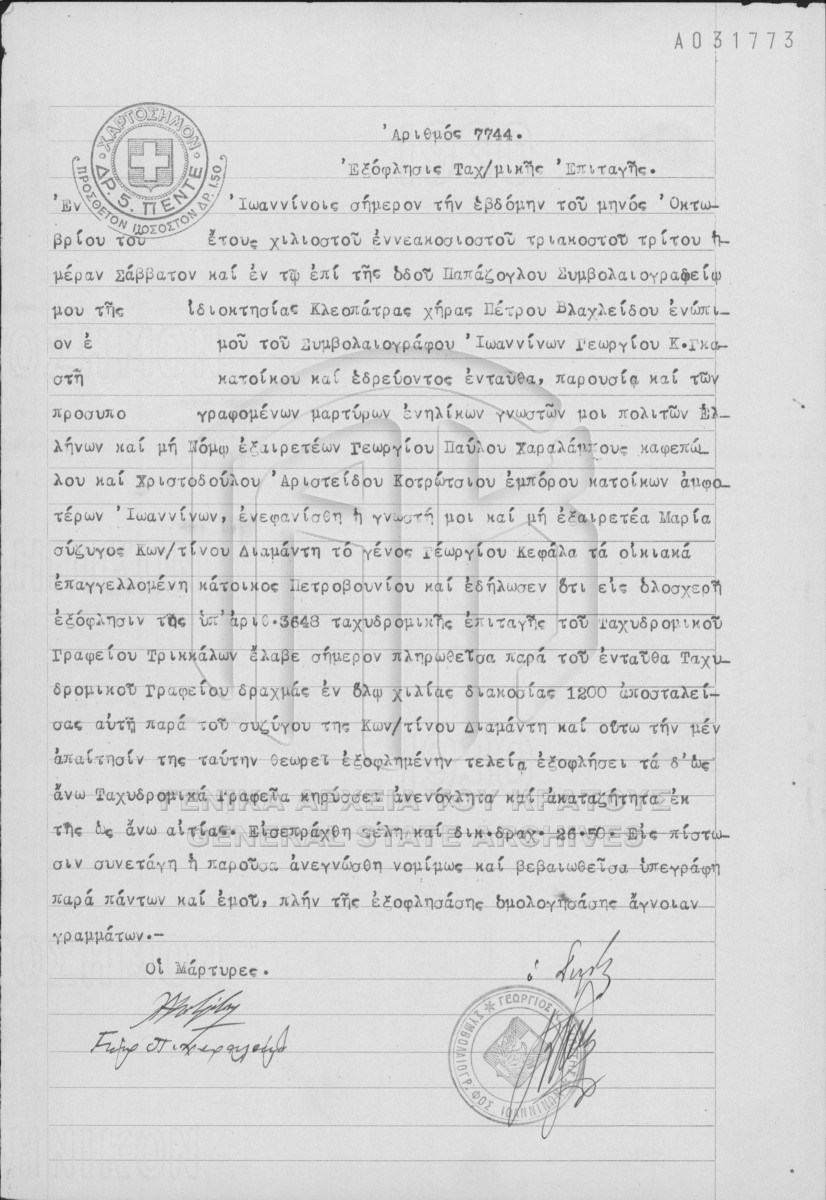 A031773
ΧΑΡΤΟΣΗΜΟΝ
ΔΡ. 5. ΠΕΝΤΕ
ΠΡΟΣΘΕΤΟΝ ΠΟΣΟΣΤΟΝ ΔΡ. 1.50
Ἀριθμός 7744.
Ἐξόφλησις Ταχ/μικῆς Ἐπιταγῆς.
Ἐν Ἰωαννίνοις σήμερον τήν ἑβδόμην τοῦ μηνός Ὀκτω-
βρίου τοῦ ἔτους χιλιοστοῦ ἐννεακοσιοστοῦ τριακοστοῦ τρίτου ἡ-
μέραν Σάββατον καί ἐν τῳ ἐπί τῆς ὁδοῦ Παπάζογλου Συμβολαιογραφείῳ
μου τῆς ἰδιοκτησίας Κλεοπάτρας χήρας Πέτρου Βλαχλείδου ἐνώπι-
ον ἐ μοῦ τοῦ Συμβολαιογράφου Ἰωαννίνων Γεωργίου Κ.Γκα-
στῆ κατοίκου καί ἑδρεύοντος ἐνταῦθα, παρουσίᾳ καί τῶν
προσυπο γραφομένων μαρτύρων ἐνηλίκων γνωστῶν μοι πολιτῶν Ἑλ-
λήνων καί μή Νόμῳ ἐξαιρετέων Γεωργίου Παύλου Χαραλάμπους καφεπώ-
λου καί Χριστοδούλου Ἀριστείδου Κοτρώτσιου ἐμπόρου κατοίκων ἀμφο-
τέρων Ἰωαννίνων, ἐνεφανίσθη ἡ γνωστή μοι καί μή ἐξαιρετέα Μαρία
σύζυγος Κων/τίνου Διαμάντη τό γένος Γέωργίου Κεφάλα τά οἰκιακά
ἐπαγγελλομένη κάτοικος Πετροβουνίου καί ἐδήλωσεν ὅτι εἰς ὁλοσχερῆ
ἐξόφλησιν τῆς ὑπ'ἀριθ.3648 ταχυδρομικῆς ἐπιταγῆς τοῦ Ταχυδρομικοῦ
Γραφείου Τρικκάλων ἔλαβε σήμερον πληρωθεῖσα παρά τοῦ ἐνταῦθα Ταχυ-
δρομικοῦ Γραφείου δραχμάς ἐν ὅλῳ χιλίας διακοσίας 1200 ἀποσταλεί-
σας αὐτῆ παρά τοῦ συζύγου της Κων/τίνου Διαμάντη καί οὕτω τήν μέν
ἀπαίτησίν της ταύτην θεωρεῖ ἐξοφλημένην τελείᾳ ἐξοφλήσει τά δ'ὡς
ἄνω Ταχυδρομικά Γραφεῖα κηρύσσει ἀνενόχλητα καί ἀκαταζήτητα ἐκ
τῆς ὡς ἄνω αἰτίας. Εἰσεπράχθη τέλη καί δικ.δραχ. 26.50. Εἰς πίστω-
σιν συνετάγη ἡ παροῦσα ἀνεγνώσθη νομίμως καί βεβαιωθεῖσα ὑπεγράφη
παρά πάντων καί ἐμοῦ, πλήν τῆς ἐξοφλησάσης ὁμολογησάσης ἄγνοιαν
γραμμάτων.-
Οἱ Μάρτυρες.
ΓΕΝΙΚΑ ΑΡΧΕΙΑ ΤΟΥ ΚΡΑΤΟΥΣ
GENERAL STATE ARCHIVES